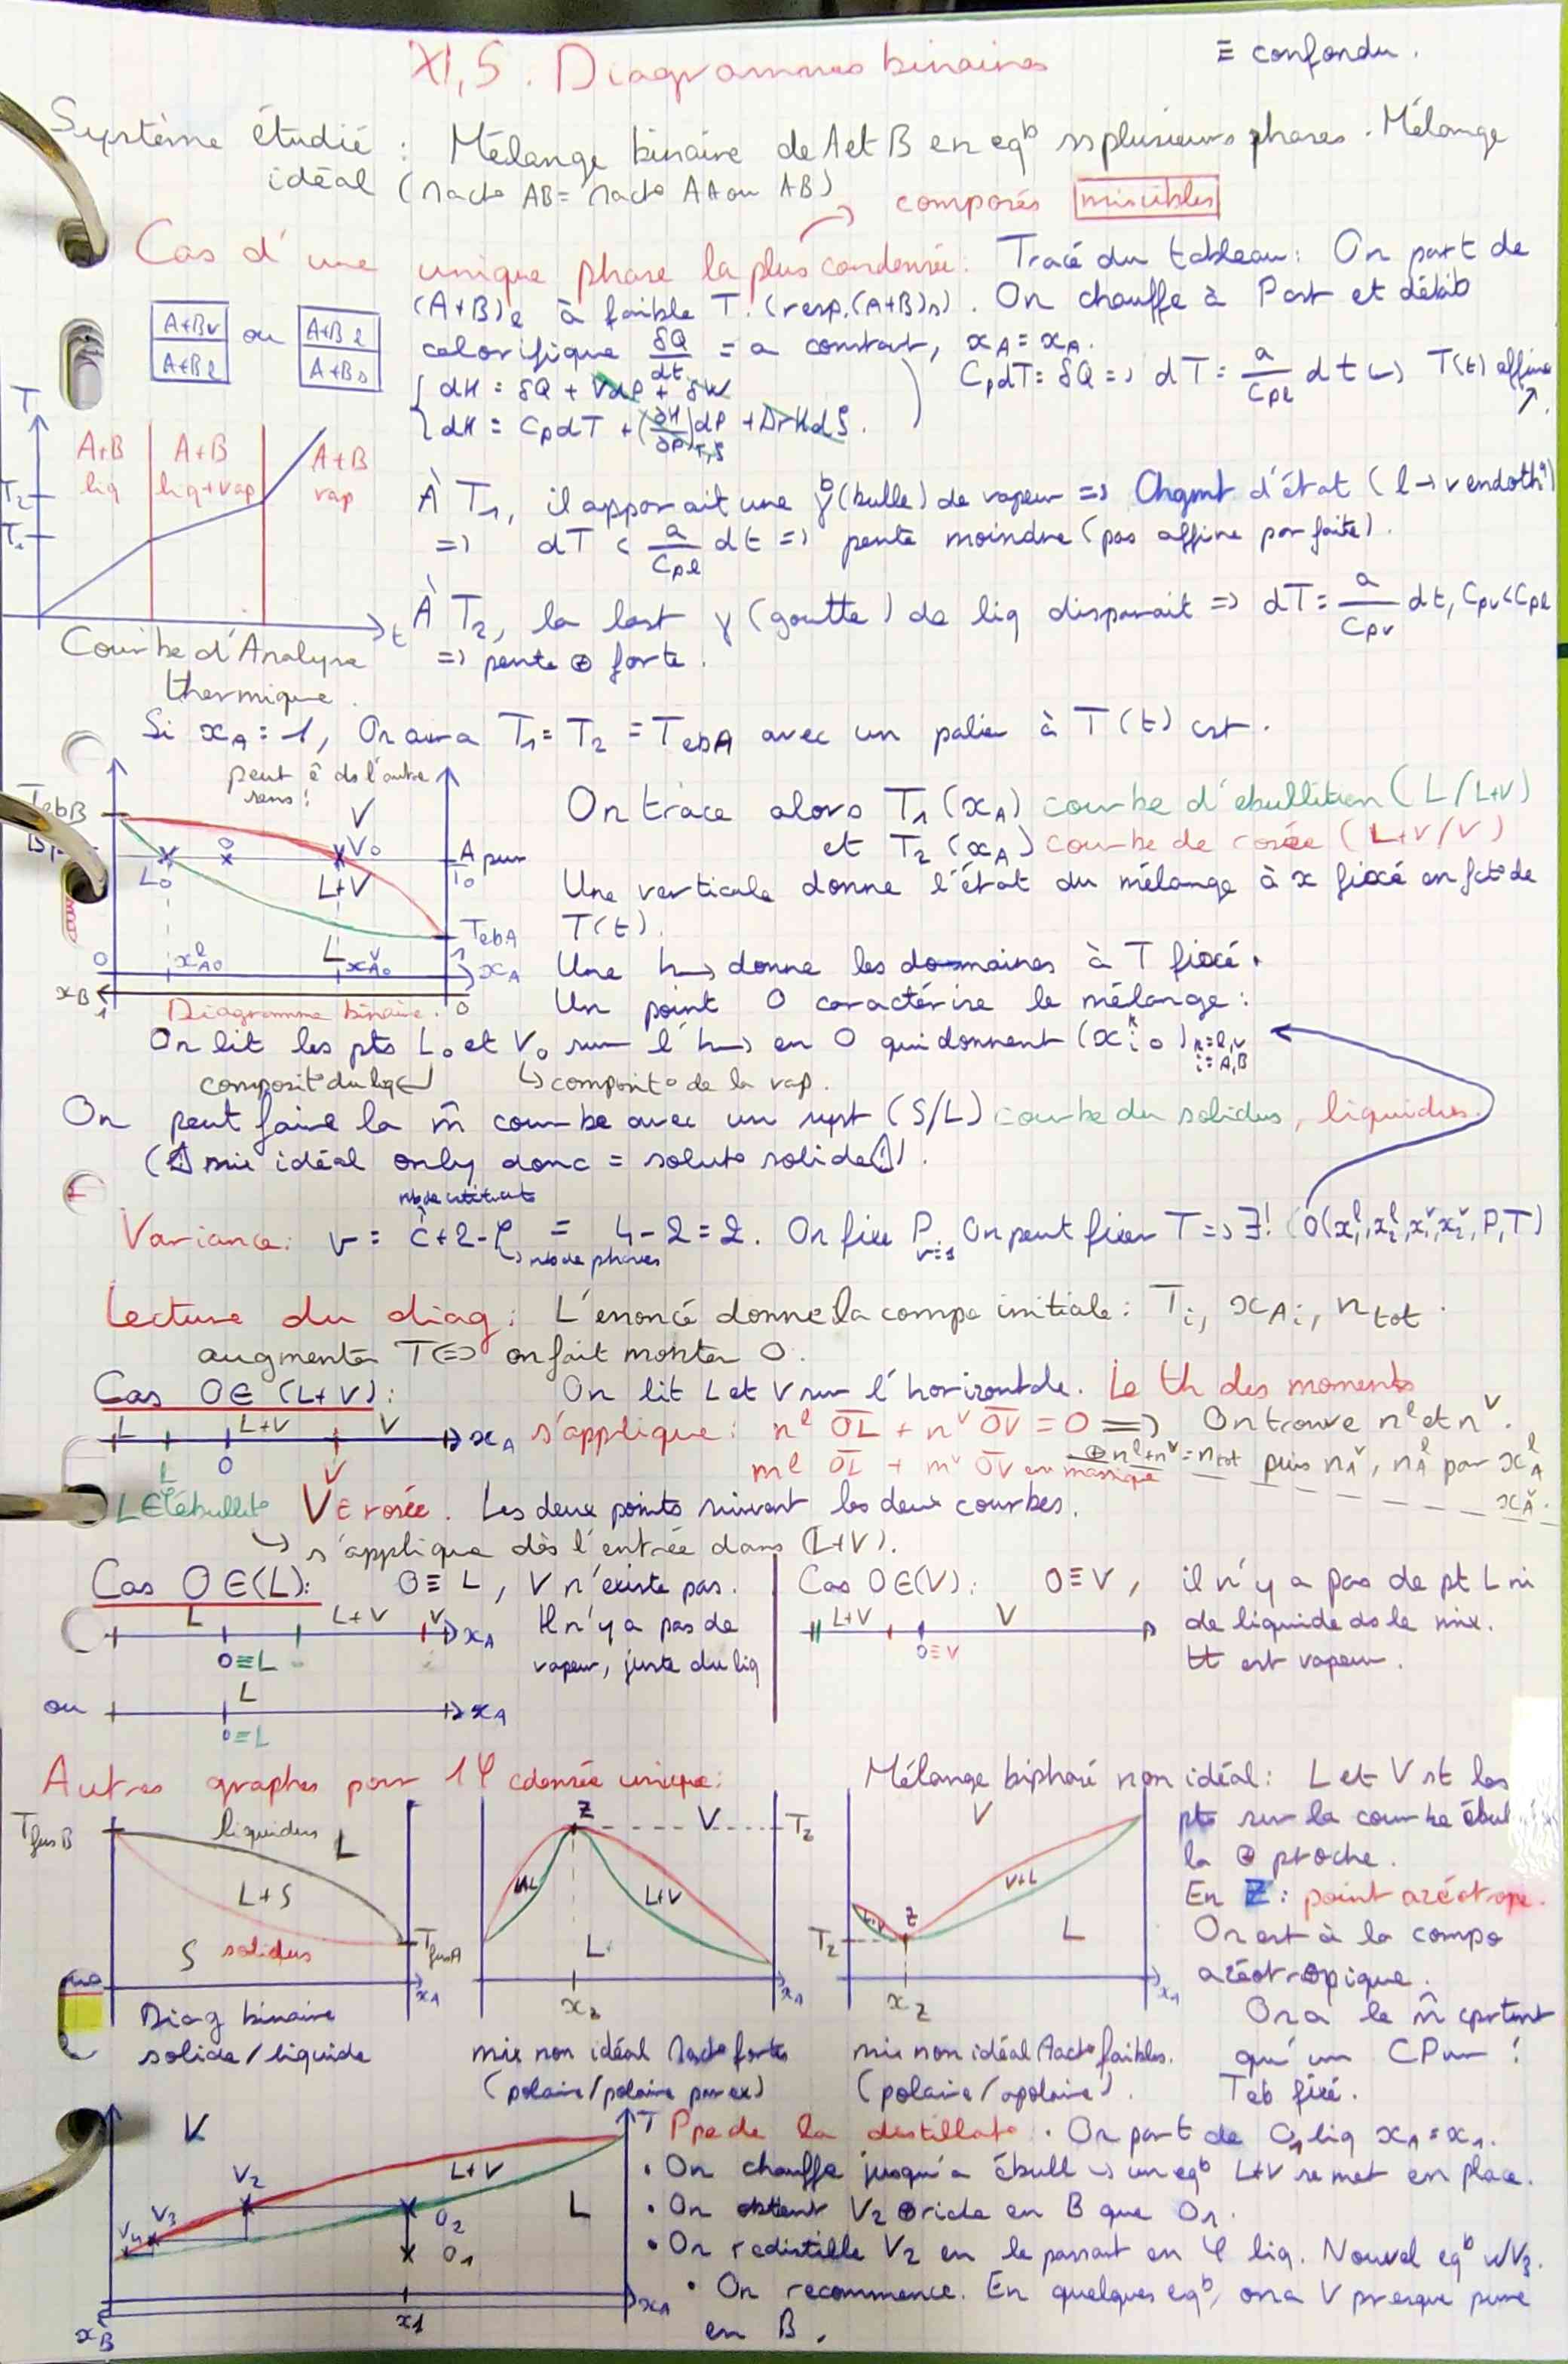 XI,5. Diagrammes binaires
≡ confondu.
Système étudié : Mélange binaire de A et B en eqb ss plusieurs phases. Mélange
idéal (racto AB = racto AA ou AB)
composés miscibles
Cas d'une unique phase la plus condensée: Tracé du tableau: On part de
(A+B)l à faible T. (resp.(A+B)s). On chauffe à P cst et débit
calorifique δQ/dt = a constant, xA = xA.
A+Bv
A+Bl
ou
A+B l
A+B s
{ dH = δQ + VdP + δW
{ dH = CpdT + (∂H/∂P)T,ξ dP + ΔrHdξ.
CpdT = δQ => dT = a/Cpl dt ↪ T(t) affine ↗.
T
A+B liq
A+B liq+vap
A+B vap
T2
T1
t
Courbe d'Analyse
thermique.
À T1, il apparait une γb (bulle) de vapeur => Chgmt d'état (l→v endothq)
=> dT < a/Cpl dt => pente moindre (pas affine parfaite).
À T2, la last γ (goutte) de liq disparait => dT = a/Cpv dt, Cpv<Cpl
=> pente ⊕ forte.
Si xA = 1, On aura T1 = T2 = TebA avec un palier à T(t) cst.
peut ê ds l'autre
sens!
TebB
V
O
V0
A pur
T0
L0
L+V
TebA
L
0
xlA0
xvA0
1
xA
xB
1
Diagramme binaire.
0
On trace alors T1(xA) courbe d'ebullition (L/L+V)
et T2(xA) courbe de rosée (L+V/V)
Une verticale donne l'état du mélange à x fixé en fcto de
T(t).
Une h→ donne les domaines à T fixé.
Un point O caractérise le mélange:
On lit les pts L0 et V0 sur l'h→ en O qui donnent (xki0) k=l,v i=A,B
composito du liq ↵
↳ composito de la vap.
On peut faire la m̂ courbe avec un syst (S/L) courbe du solidus, liquidus.
(⚠ mix idéal only donc = soluto solide ⚠).
Variance: v = c+2-φ = 4-2=2. On fixe P v=1 On peut fixer T => ∃! O(xl1,xl2,xv1,xv2,P,T)
↳ nb de phases
Lecture du diag: L'enoncé donne la compo initiale: Ti, xAi, ntot.
augmenter T <=> on fait monter O.
Cas O∈(L+V): On lit L et V sur l'horizontale. Le th des moments
L
L+V
V
xA
L
O
V
s'applique: nl OL + nv OV = 0 => On trouve nl et nv.
ml OL + mv OV en massique
⊕ nl+nv=ntot puis nvA, nlA par xlA
xvA.
L∈ébullito V∈rosée. Les deux points suivent les deux courbes.
↳ s'applique dès l'entrée dans (L+V).
Cas O∈(L): O≡L, V n'existe pas.
L
L+V
V
xA
Il n'y a pas de
vapeur, juste du liq
O≡L
ou
L
xA
O≡L
Cas O∈(V): O≡V, il n'y a pas de pt L ni
L+V
V
de liquide ds le mix.
O≡V
tt est vapeur.
Autres graphes pour 1φ cdensée unique:
TfusB
liquidus
L
L+S
S
solidus
TfusA
xA
Diag binaire
solide/liquide
Z
V
TZ
L+V
L
xZ
xA
mix non idéal racto fortes
(polaire/polaire par ex)
V
V+L
L+V
Z
TZ
L
xZ
xA
mix non idéal racto faibles.
(polaire/apolaire).
Mélange biphasé non idéal: L et V st les
pts sur la courbe ébul
la ⊕ proche.
En Z: point azéotrope.
On est à la compo
azéotropique.
On a le m̂ cprtmt
qu'un CPur!
Teb fixé.
V
T
L+V
V2
V3
V4
L
O2
O1
xA
x1
xB
Ppe de la distillato. On part de O1 liq xA = x1.
• On chauffe jusqu'a ébull ↪ un eqb L+V se met en place.
• On obtient V2 ⊕ riche en B que O1.
• On redistille V2 en le passant en φ liq. Nouvel eqb w/V3.
• On recommence. En quelques eqb, on a V presque pure
en B.